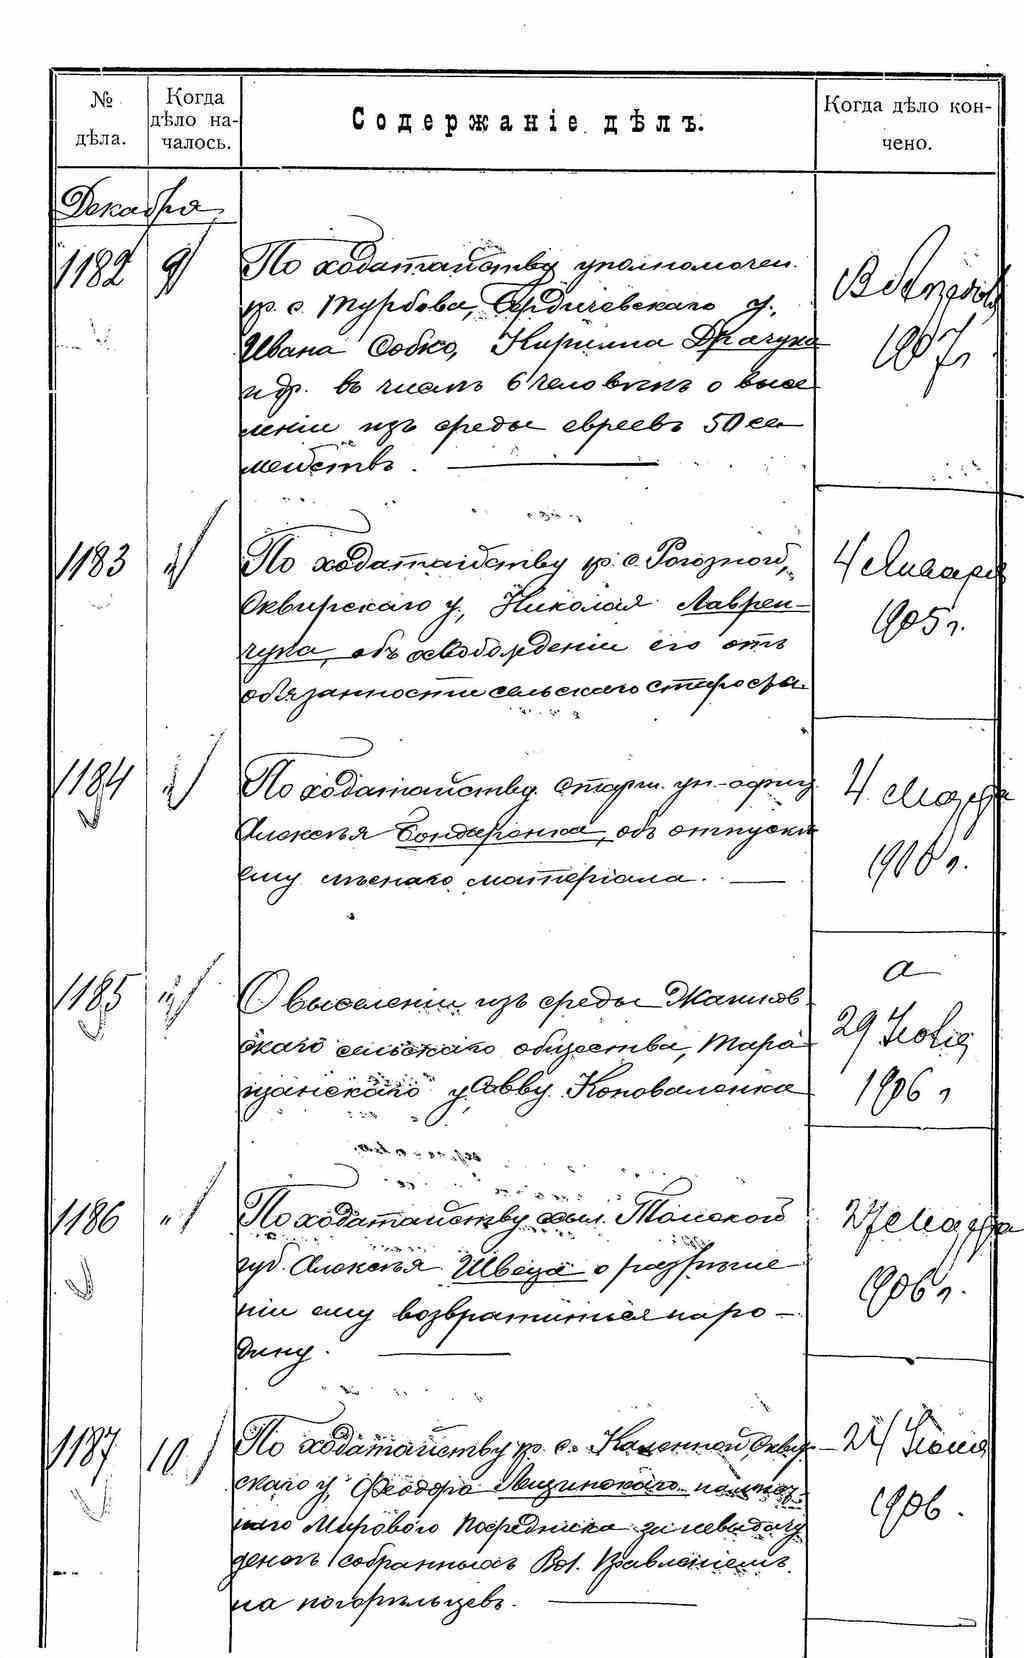 № дѣла.
Когда дѣло на-
чалось.
Содержаніе дѣлъ.
Когда дѣло кон-
чено.
Декабря
1182 9
По ходатайству уполномочен.
кр. с. Турбова, Бердичевскаго у.,
Ивана Собко, Кирилла Драчука
и др. въ числѣ 6 человѣкъ о высе
леніи изъ среды евреевъ 50 се
мействъ.
1907 г.
1183 "
По ходатайству кр. с. Рогозной,
Сквирскаго у., Николая Лаврен-
чука, объ освобожденіи его отъ
обязанности сельскаго старосты.
4 Января
1905 г.
1184 "
По ходатайству старш. ун.-офиц.
Алексѣя Бондаренка, объ отпускѣ
ему лѣснаго матеріала.
4 Марта
190 г.
1185 "
О выселеніи изъ среды Жашков
скаго сельскаго общества, Тара
щанскаго у. Савву Коноваленка
29
1906 г
1186 "
По ходатайству жил. Томской
губ. Алексѣя Швеца о разрѣше
ніи ему возвратиться на ро-
дину.
27 Марта
1906 г.
1187 10
По ходатайству кр. с. Каленной, Сквир-
скаго у. Феодора Лещинскаго на
наго Мирового Посредника за невыдачу
денегъ собранныхъ Вол. Правленіемъ
на погорѣльцевъ.
24 Іюня
1906.